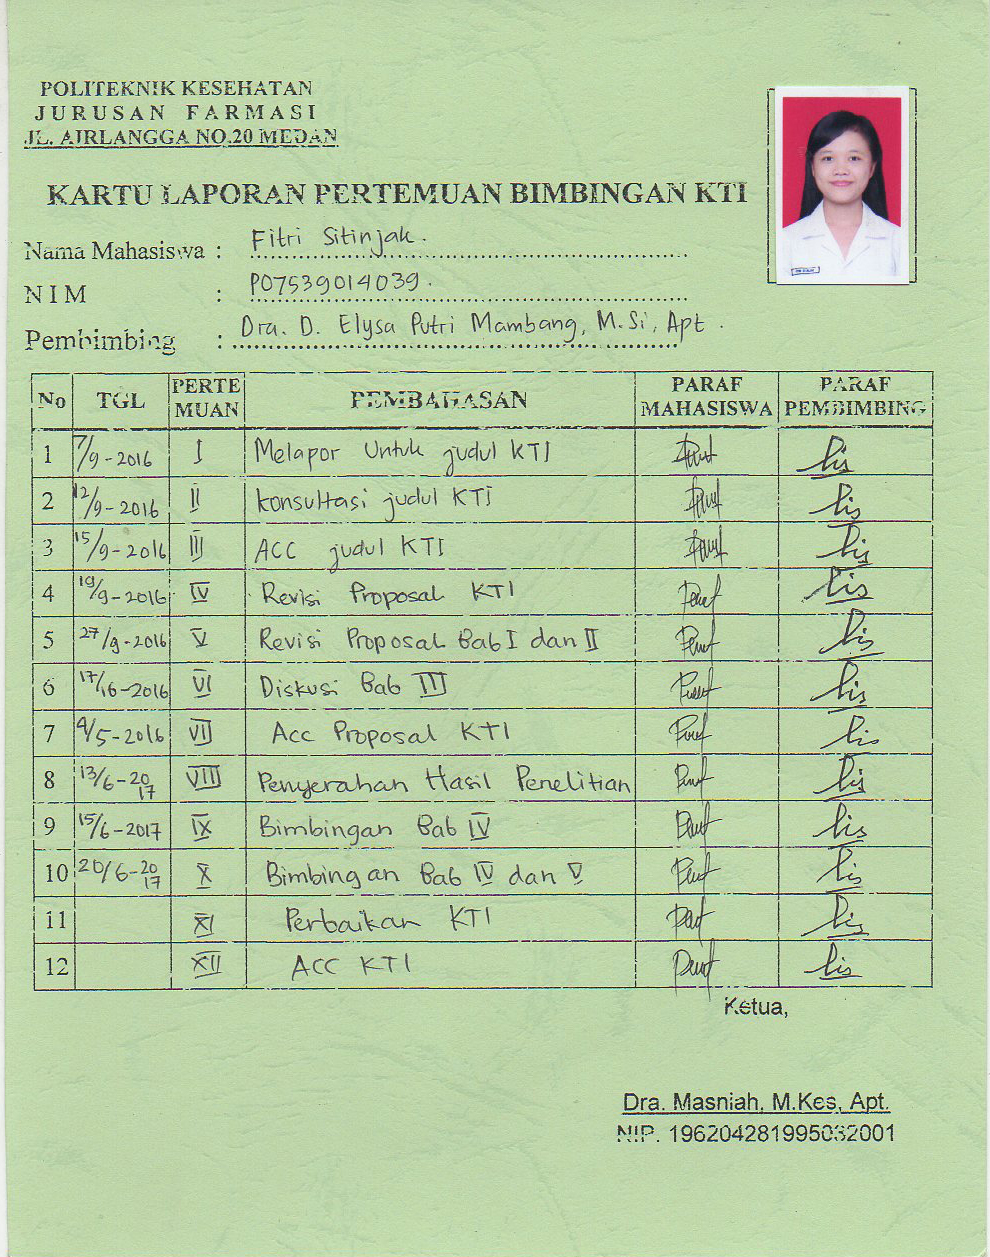 POLITEKNIK KESEHATAN
JURUSAN FARMASI
JL. AIRLANGGA NO.20 MEDAN
KARTU LAPORAN PERTEMUAN BIMBINGAN KTI
Nama Mahasiswa : Fitri Sitinjak.
NIM : P07539014039.
Pembimbing : Dra. D. Elysa Putri Mambang, M.Si, Apt.
No TGL PERTE MUAN PEMBAHASAN PARAF MAHASISWA PARAF PEMBIMBING
1 7/9-2016 I Melapor Untuk judul KTI
2 12/9-2016 II konsultasi judul KTI
3 15/9-2016 III ACC judul KTI
4 19/9-2016 IV Revisi Proposal KTI
5 27/9-2016 V Revisi Proposal Bab I dan II
6 17/16-2016 VI Diskusi Bab III
7 4/5-2016 VII Acc Proposal KTI
8 13/6-2017 VIII Penyerahan Hasil Penelitian
9 15/6-2017 IX Bimbingan Bab IV
10 20/6-2017 X Bimbingan Bab IV dan V
11 XI Perbaikan KTI
12 XII ACC KTI
Ketua,
Dra. Masniah, M.Kes, Apt.
NIP. 196204281995032001